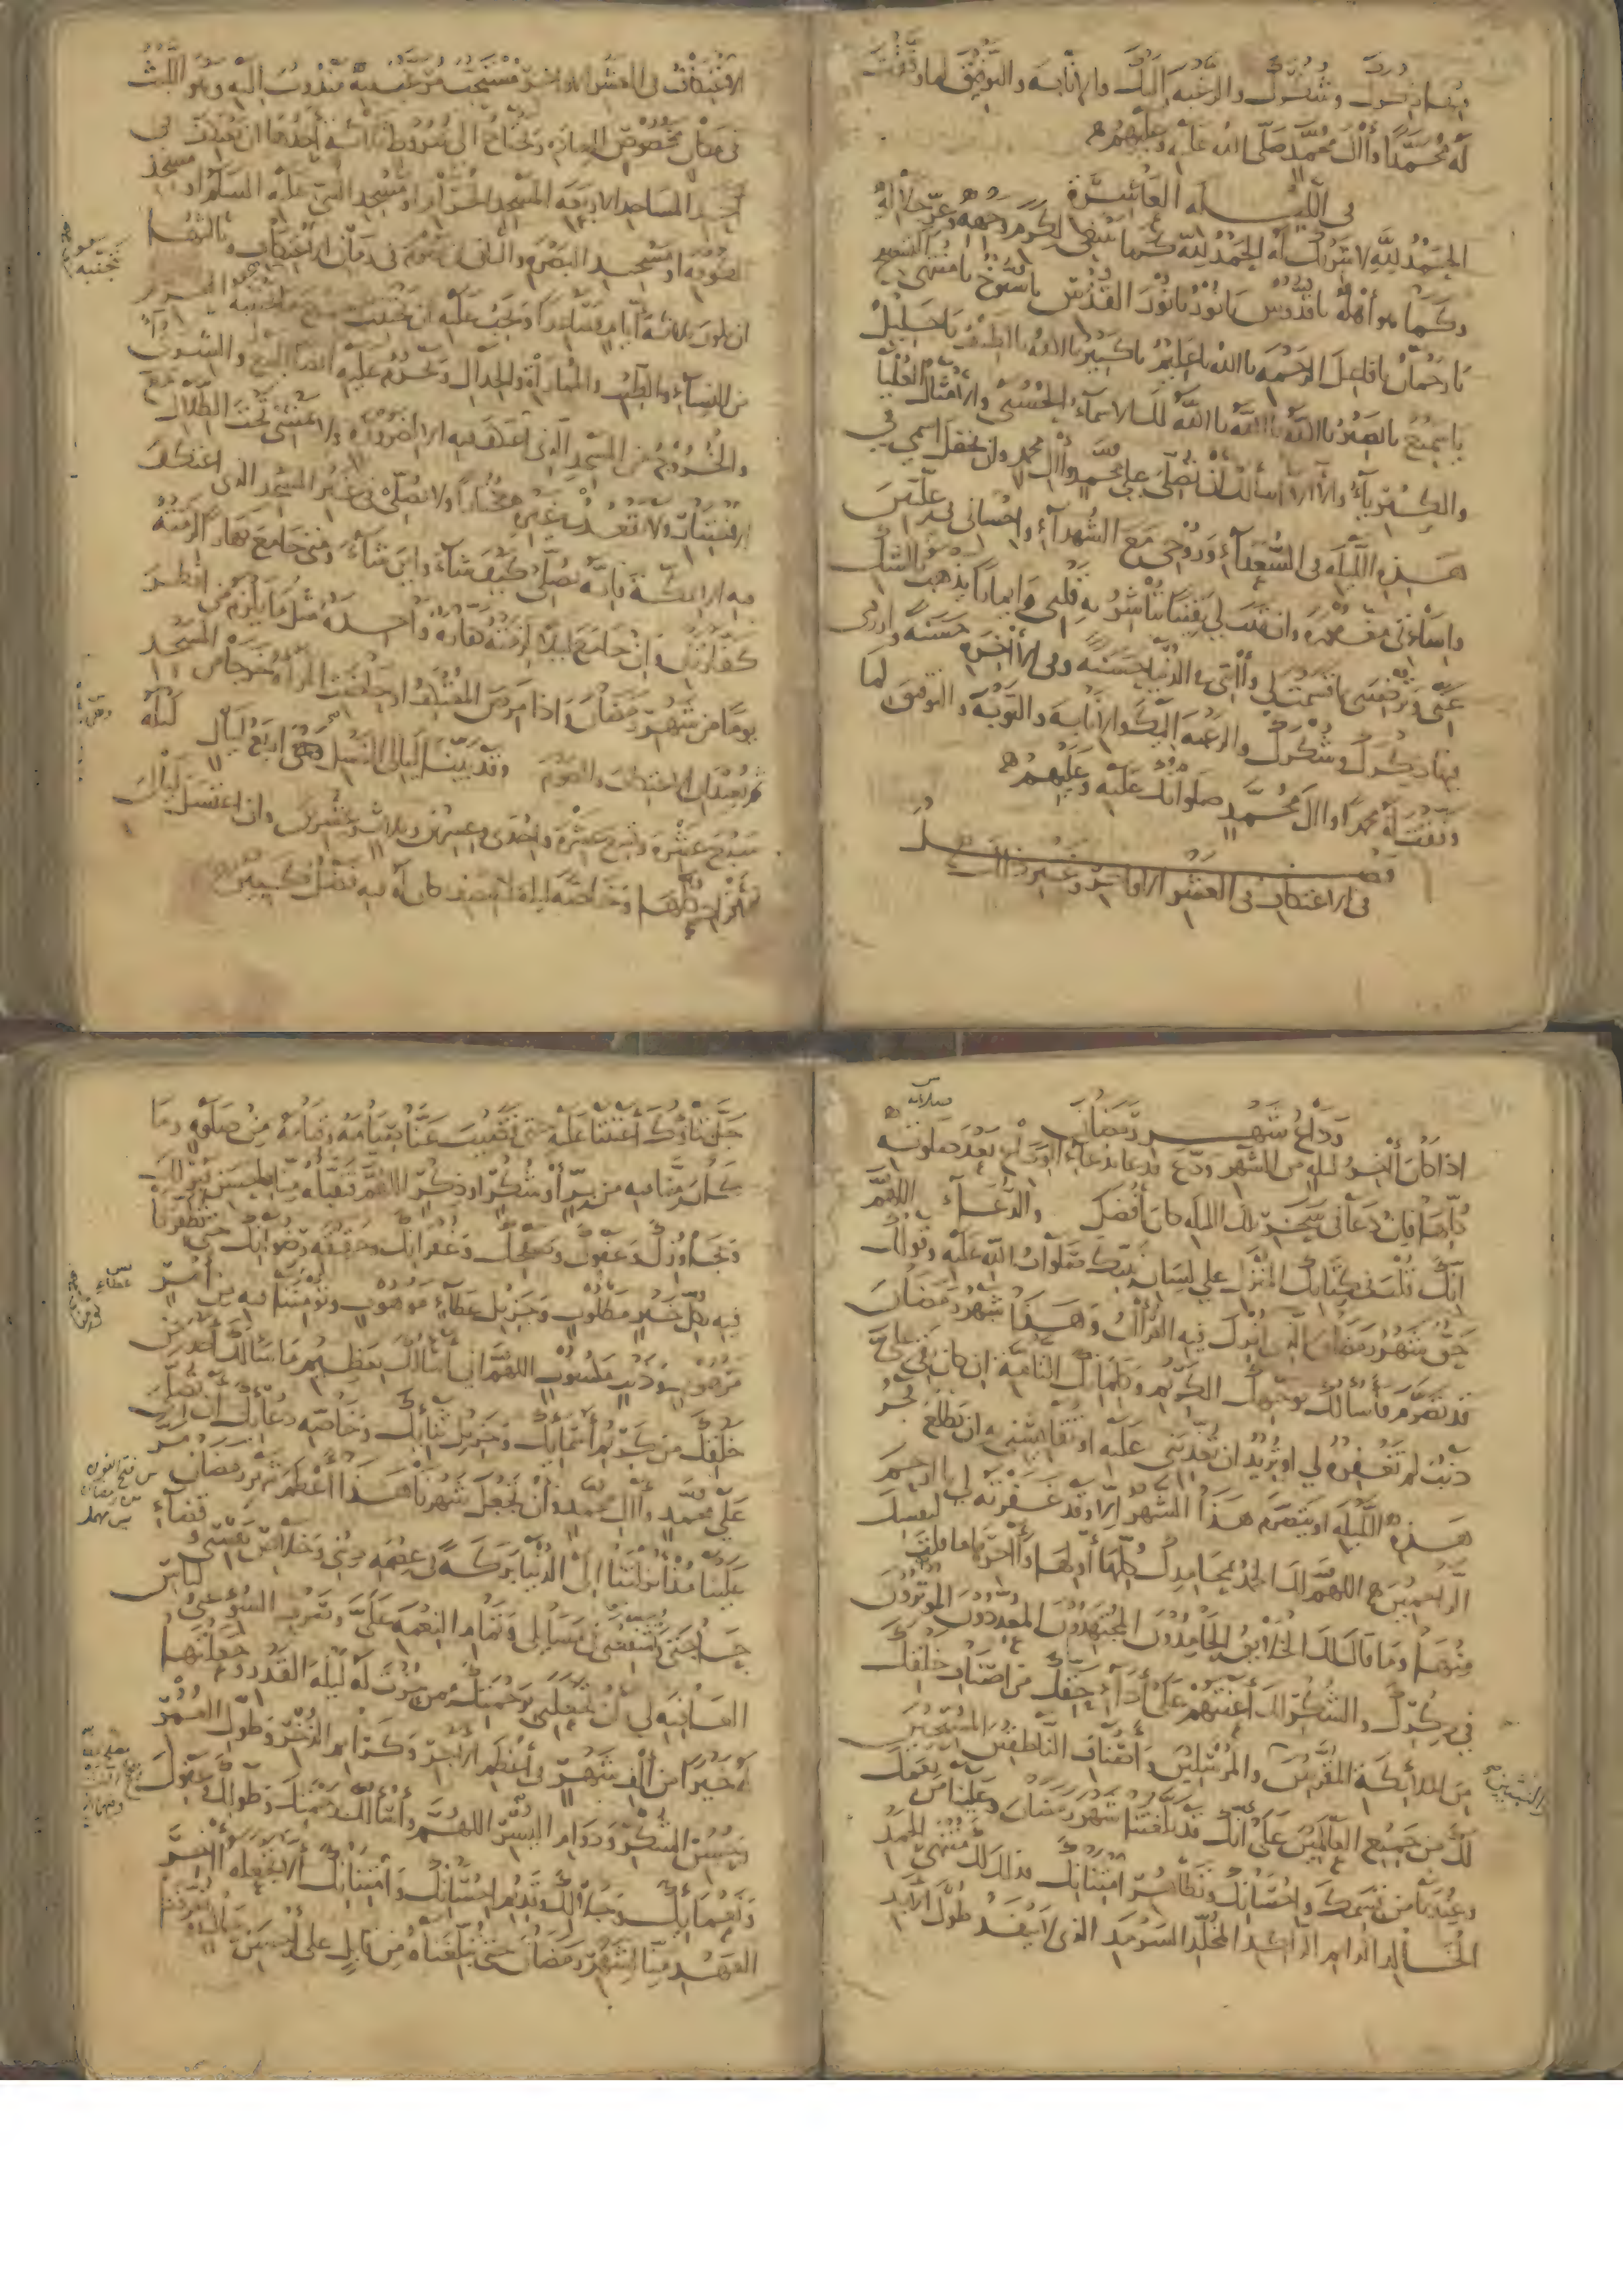 فيها ذكرك وشكرك والرغبة إليك والإنابة والتوفيق لما وفقت
له محمدا وآل محمد صلى الله عليه وعليهم
في الليلة العاشرة
الحمد لله لا شريك له الحمد لله كما ينبغي لكرم وجهه وعز جلاله
وكما هو أهله يا قدوس يا نور يا نور القدس يا سبوح يا منتهى التسبيح
يا رحمان يا فاعل الرحمة يا الله يا عليم يا كبير يا الله يا لطيف يا جليل
يا سميع يا بصير يا الله يا الله يا الله لك الأسماء الحسنى والأمثال العليا
والكبرياء والآلاء أسألك أن تصلي على محمد وآل محمد وأن تجعل اسمي في
هذه الليلة في السعداء وروحي مع الشهداء وإحساني في عليين
وإساءتي مغفورة وأن تهب لي يقينا تباشر به قلبي وإيمانا يذهب بالشك
عني وترضيني بما قسمت لي وآتني في الدنيا حسنة وفي الآخرة حسنة وارزقني
فيها ذكرك وشكرك والرغبة إليك والإنابة والتوبة والتوفيق لما
وفقت له محمدا وآل محمد صلواتك عليه وعليهم
فصل
في الاعتكاف في العشر الأواخر وغير ذلك
الاعتكاف في العشر الأواخر مستحب مرغب فيه مندوب إليه وهو اللبث
في مكان مخصوص للعبادة ويحتاج إلى شروط ثلاثة أحدها أن يعتكف في
أحد المساجد الأربعة المسجد الحرام أو مسجد النبي عليه السلام أو مسجد
الكوفة أو مسجد البصرة والثاني أن يصوم في زمان الاعتكاف والثالث
أن يكون ثلاثة أيام فصاعدا ويجب عليه أن يجتنب جميع ما يجتنبه المحرم
من النساء والطيب والمماراة والجدال ويحرم عليه أيضا البيع والشرى
والخروج من المسجد الذي اعتكف فيه إلا لضرورة ولا يمشي تحت الظلال مع
الاختيار ولا يقعد في غيره مختارا ولا يصلي في غير المسجد الذي اعتكف
فيه إلا بمكة فإنه يصلي كيف شاء وأين شاء ومتى جامع نهارا لزمته
كفارتان وإن جامع ليلا لزمته كفارة واحدة مثل ما يلزم من أفطر
يوما من شهر رمضان وإذا مرض المعتكف أو حاضت المرأة خرجا من المسجد
ثم يعيدان الاعتكاف والصوم وقد بينا ليالي الغسل هي أربع ليال ليلة
سبع عشرة وتسع عشرة وإحدى وعشرين وثلاث وعشرين وإن اغتسل ليالي
الإفراد كلها وخاصة ليلة النصف كان له فيه فضل كبير
وداع شهر رمضان
إذا كان آخر ليلة من الشهر ودع فدعا بدعاء الوداع بعد صلوته
كلها فإن دعا في سحر تلك الليلة كان أفضل والدعاء اللهم
إنك قلت في كتابك المنزل على لسان نبيك صلوات الله عليه وقولك
حق شهر رمضان الذي أنزل فيه القرآن وهذا شهر رمضان
قد تصرم فأسألك بوجهك الكريم وكلماتك التامة إن كان بقي علي
ذنب لم تغفره لي أو تريد أن تعذبني عليه أو تقايسني به أن يطلع فجر
هذه الليلة أو يتصرم هذا الشهر إلا وقد غفرته لي يا أرحم
الراحمين اللهم لك الحمد بمحامدك كلها أولها وآخرها ما قلت لنفسك
منها وما قال لك الخلائق الحامدون المجتهدون المعددون الموثرون
في ذكرك والشكر لك أعنتهم على أداء حقك من أصناف خلقك
من الملائكة المقربين والمرسلين وأصناف الناطقين المستجيرين
والنبيين
لك من جميع العالمين على أنك قد بلغتنا شهر رمضان وعلينا من نعمك
وعندنا من قسمك وإحسانك وتظاهر امتنانك فذلك لك منتهى الحمد
الخالد الدائم الراكد المخلد السرمد الذي لا ينفد طول الأبد
جل ثناؤك أعنتنا عليه حتى قضيت عنا صيامه وقيامه من صلوة وما
كان منا فيه من بر أو شكر أو ذكر اللهم فتقبله منا بأحسن قبولك
وتجاوزك وعفوك وصفحك وغفرانك وحقيقة رضوانك حتى تظفرنا
فيه بكل خير مطلوب وجزيل عطاء موهوب وتؤمننا فيه من أمر
مرهوب وذنب مكسوب اللهم إني أسألك بعظيم ما سألك أحد من
خلقك من كريم أسمائك وجزيل ثنائك وخاصة دعائك أن تصلي
على محمد وآل محمد وأن تجعل شهرنا هذا أعظم شهر رمضان مر
علينا منذ أنزلتنا إلى الدنيا بركة في عصمة ديني وخلاص نفسي وقضاء
حاجتي وتشفعني في مسائلي وتمام النعمة علي وتصرف السوء عني ولباس
العافية لي وأن تجعلني برحمتك ممن حزت له ليلة القدر وجعلتها
له خيرا من ألف شهر في أعظم الأجر وكرائم الذخر وطول العمر
وحسن الشكر ودوام اليسر اللهم وأسألك برحمتك وطولك وعفوك
ونعمائك وجلالك وقديم إحسانك وامتنانك ألا تجعله آخر
العهد منا لشهر رمضان حتى تبلغناه من قابل على أحسن حال وتعرفنا